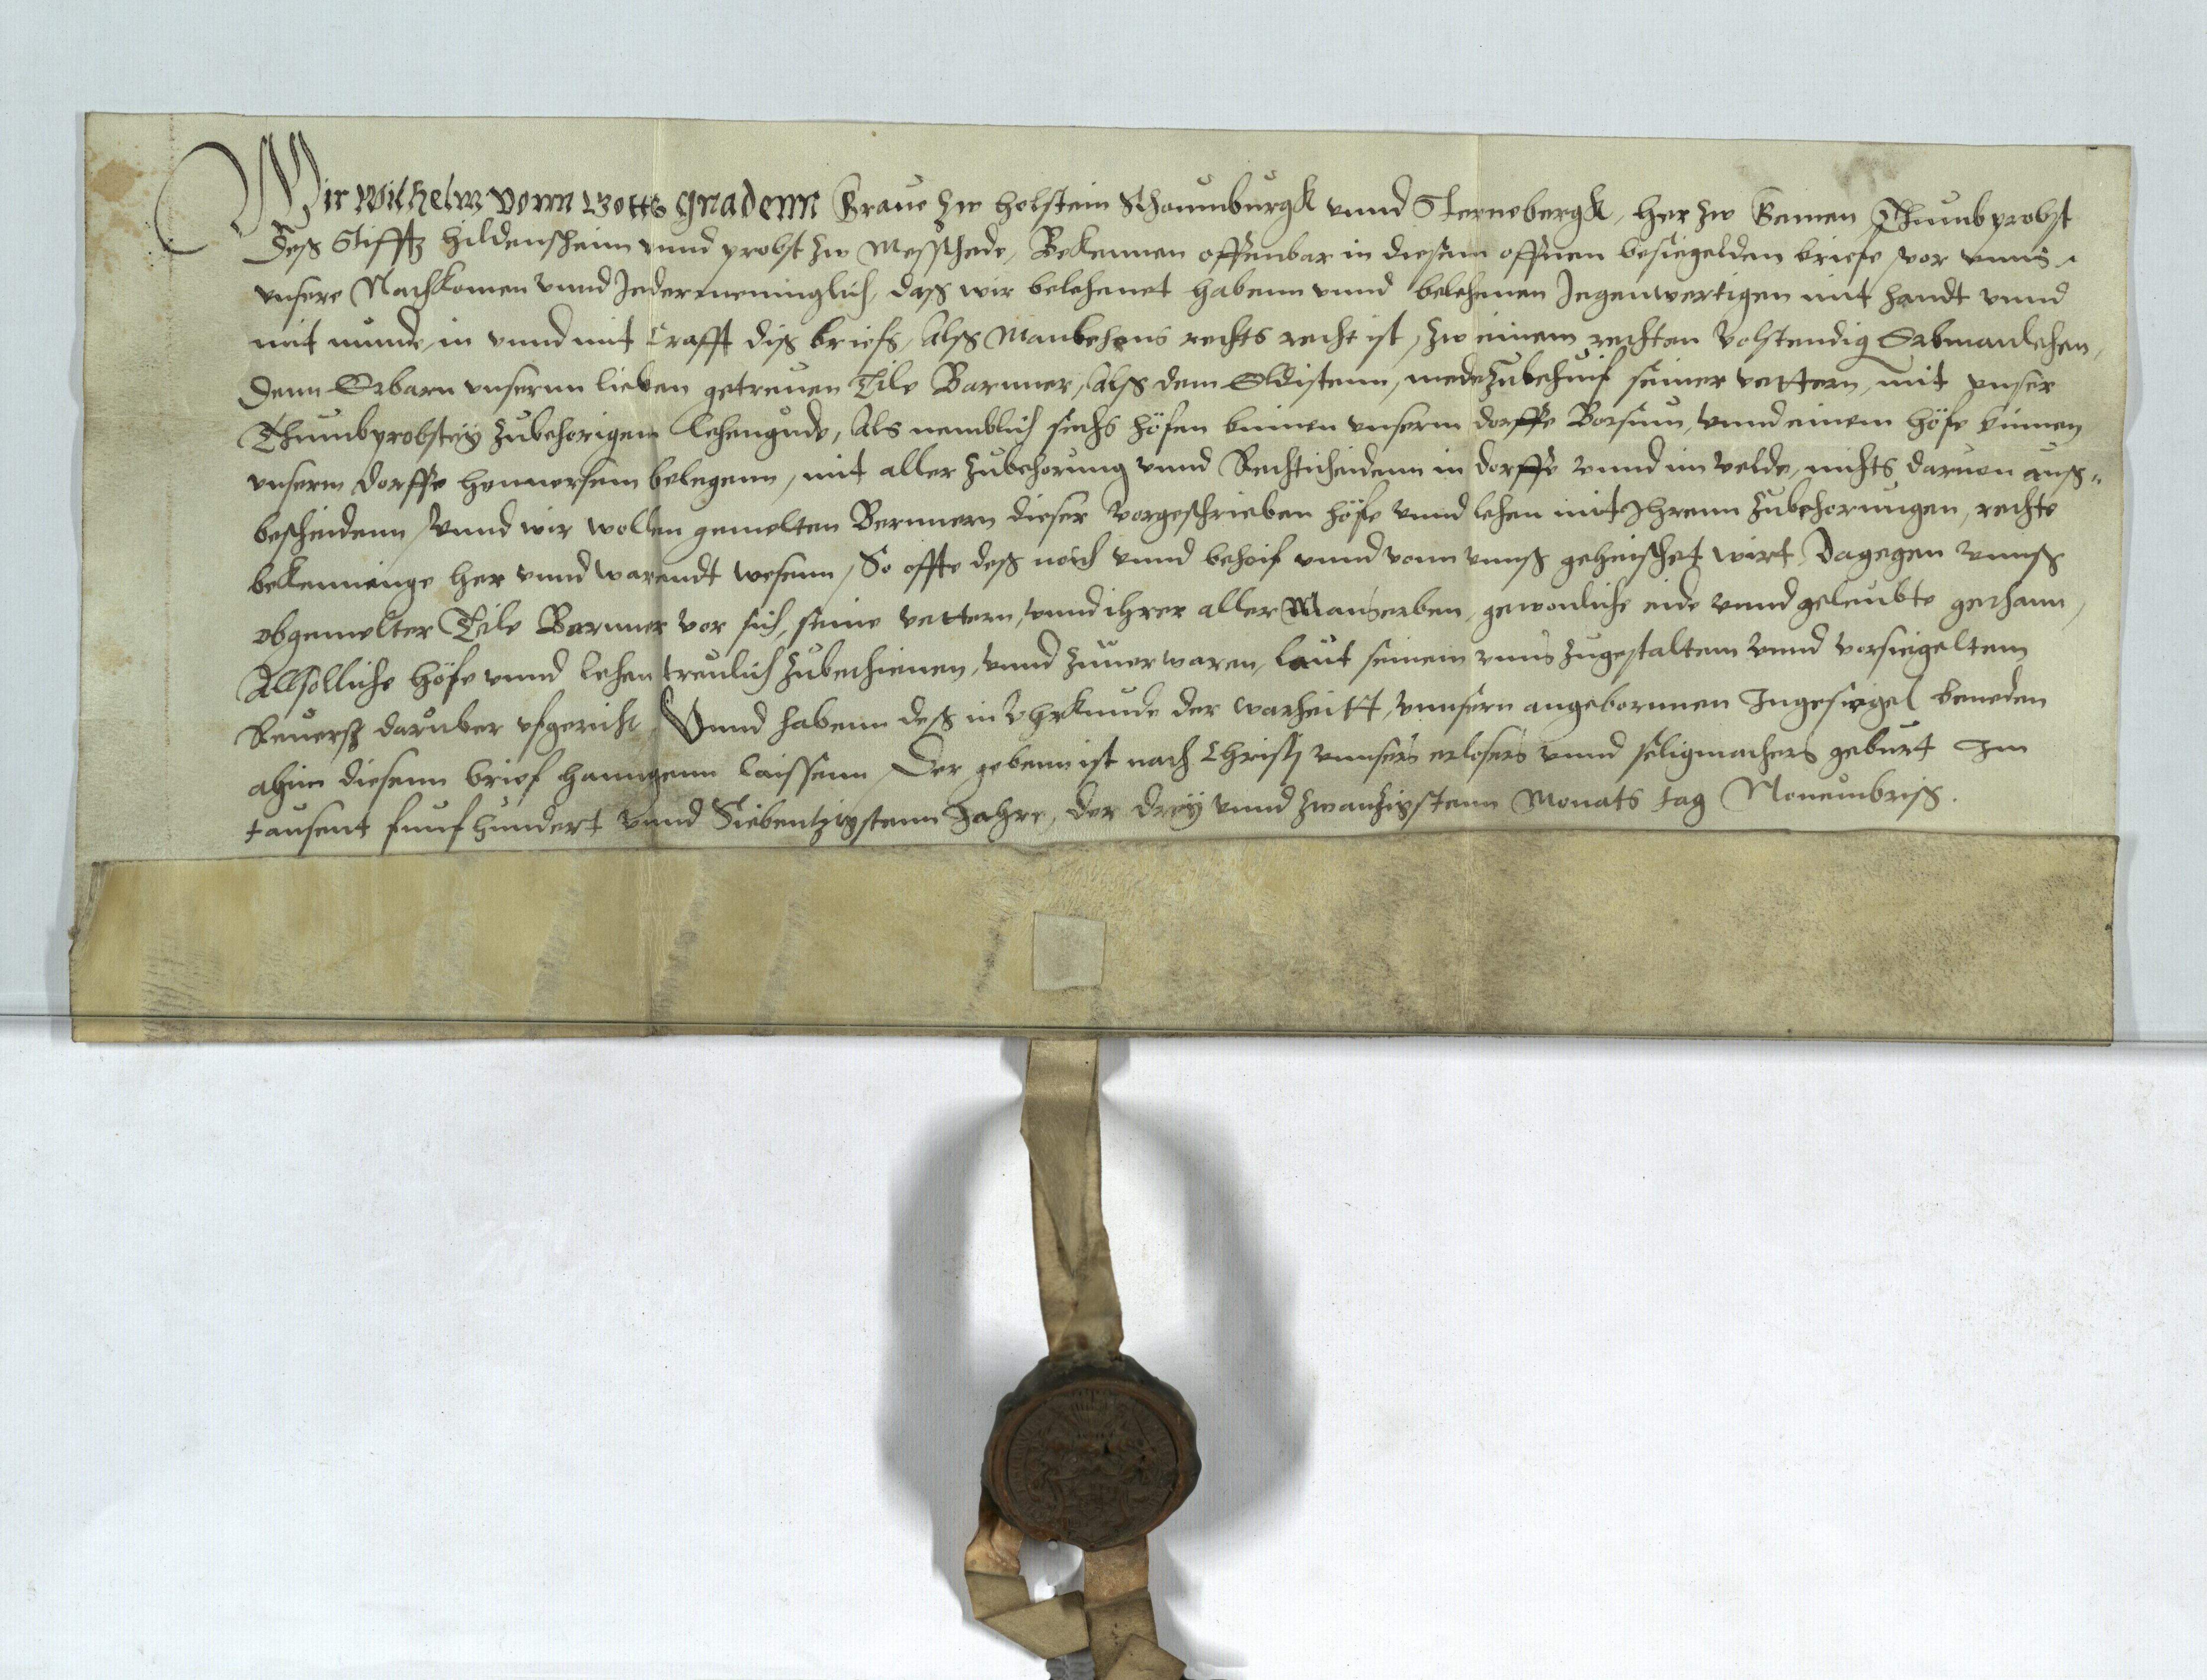 Wir Wilhelm vonn Gotts gnadenn Graue zw Holstein Schaumburgk vnnd Sternebergk, her zw Gemen Thumbprobst
Deß Stifftz Hildensheim vnnd probst zw Messchede, Bekennen offenbar in diesem offnen besiegelden briefe, vor vnns
vnsere Nachkomen vnnd Jedermenninglich, daß wir belehenet habenn vnnd belehenen Jegenwertigen mit handt vnnd
mit munde, in vnnd mit Crafft diß briefs, Alß Manlehens rechts recht ist, zw einem rechten volstendig Erbmanlehen,
Denn Erbarn vnsernn lieben getreuen Tile Barnner, Alß dem Eldistenn, mede zubehuif seiner vettern, mit vnser
Thumbprobsteÿ zubehorigem lehengude, Als nemblich sechs höfen binnen vnserm dorffe Borsum, vnnd einem höfe binnen
vnserm dorffe Honnersem belegenn, mit aller zubehorung vnnd Rechticheidenn in dorffe vnnd im velde, nichts daruon auß-
bescheidenn, Vnnd wir wollen gemelten Bernnern dieser vorgeschrieben höfe vnnd lehen mit Ihrenn zubehorungen, rechte
bekenninge her vnnd warendt wesenn, So offte deß noich vnnd behoif vnnd vonn vnnß geheischet wirt, Dagegen vnnß
obgemelter Tile Barnner vor sich, seine vettern, vnnd ihrer aller Manserben, gewonliche eide vnnd geleubte gethann,
Allsolliche höfe vnnd lehen treulich zubethienen, vnnd zuuerwaren, laut seinem vnns zugestaltem vnnd vorsiegeltem
Reuerß daruber vfgericht, Vnnd habenn deß in Vhrkunde der warheitt, vnnsern angebornnen Ingesiegel beneden
ahnn diesenn brief hanngenn laissenn, Der gebenn ist nach Christj vnnsers erlosers vnnd seligmachers geburt Im
tausent funfhundert vnnd Siebentzigstenn Jahre, der dreÿ vnnd zwanzigstenn Monats tag Nouembriß.